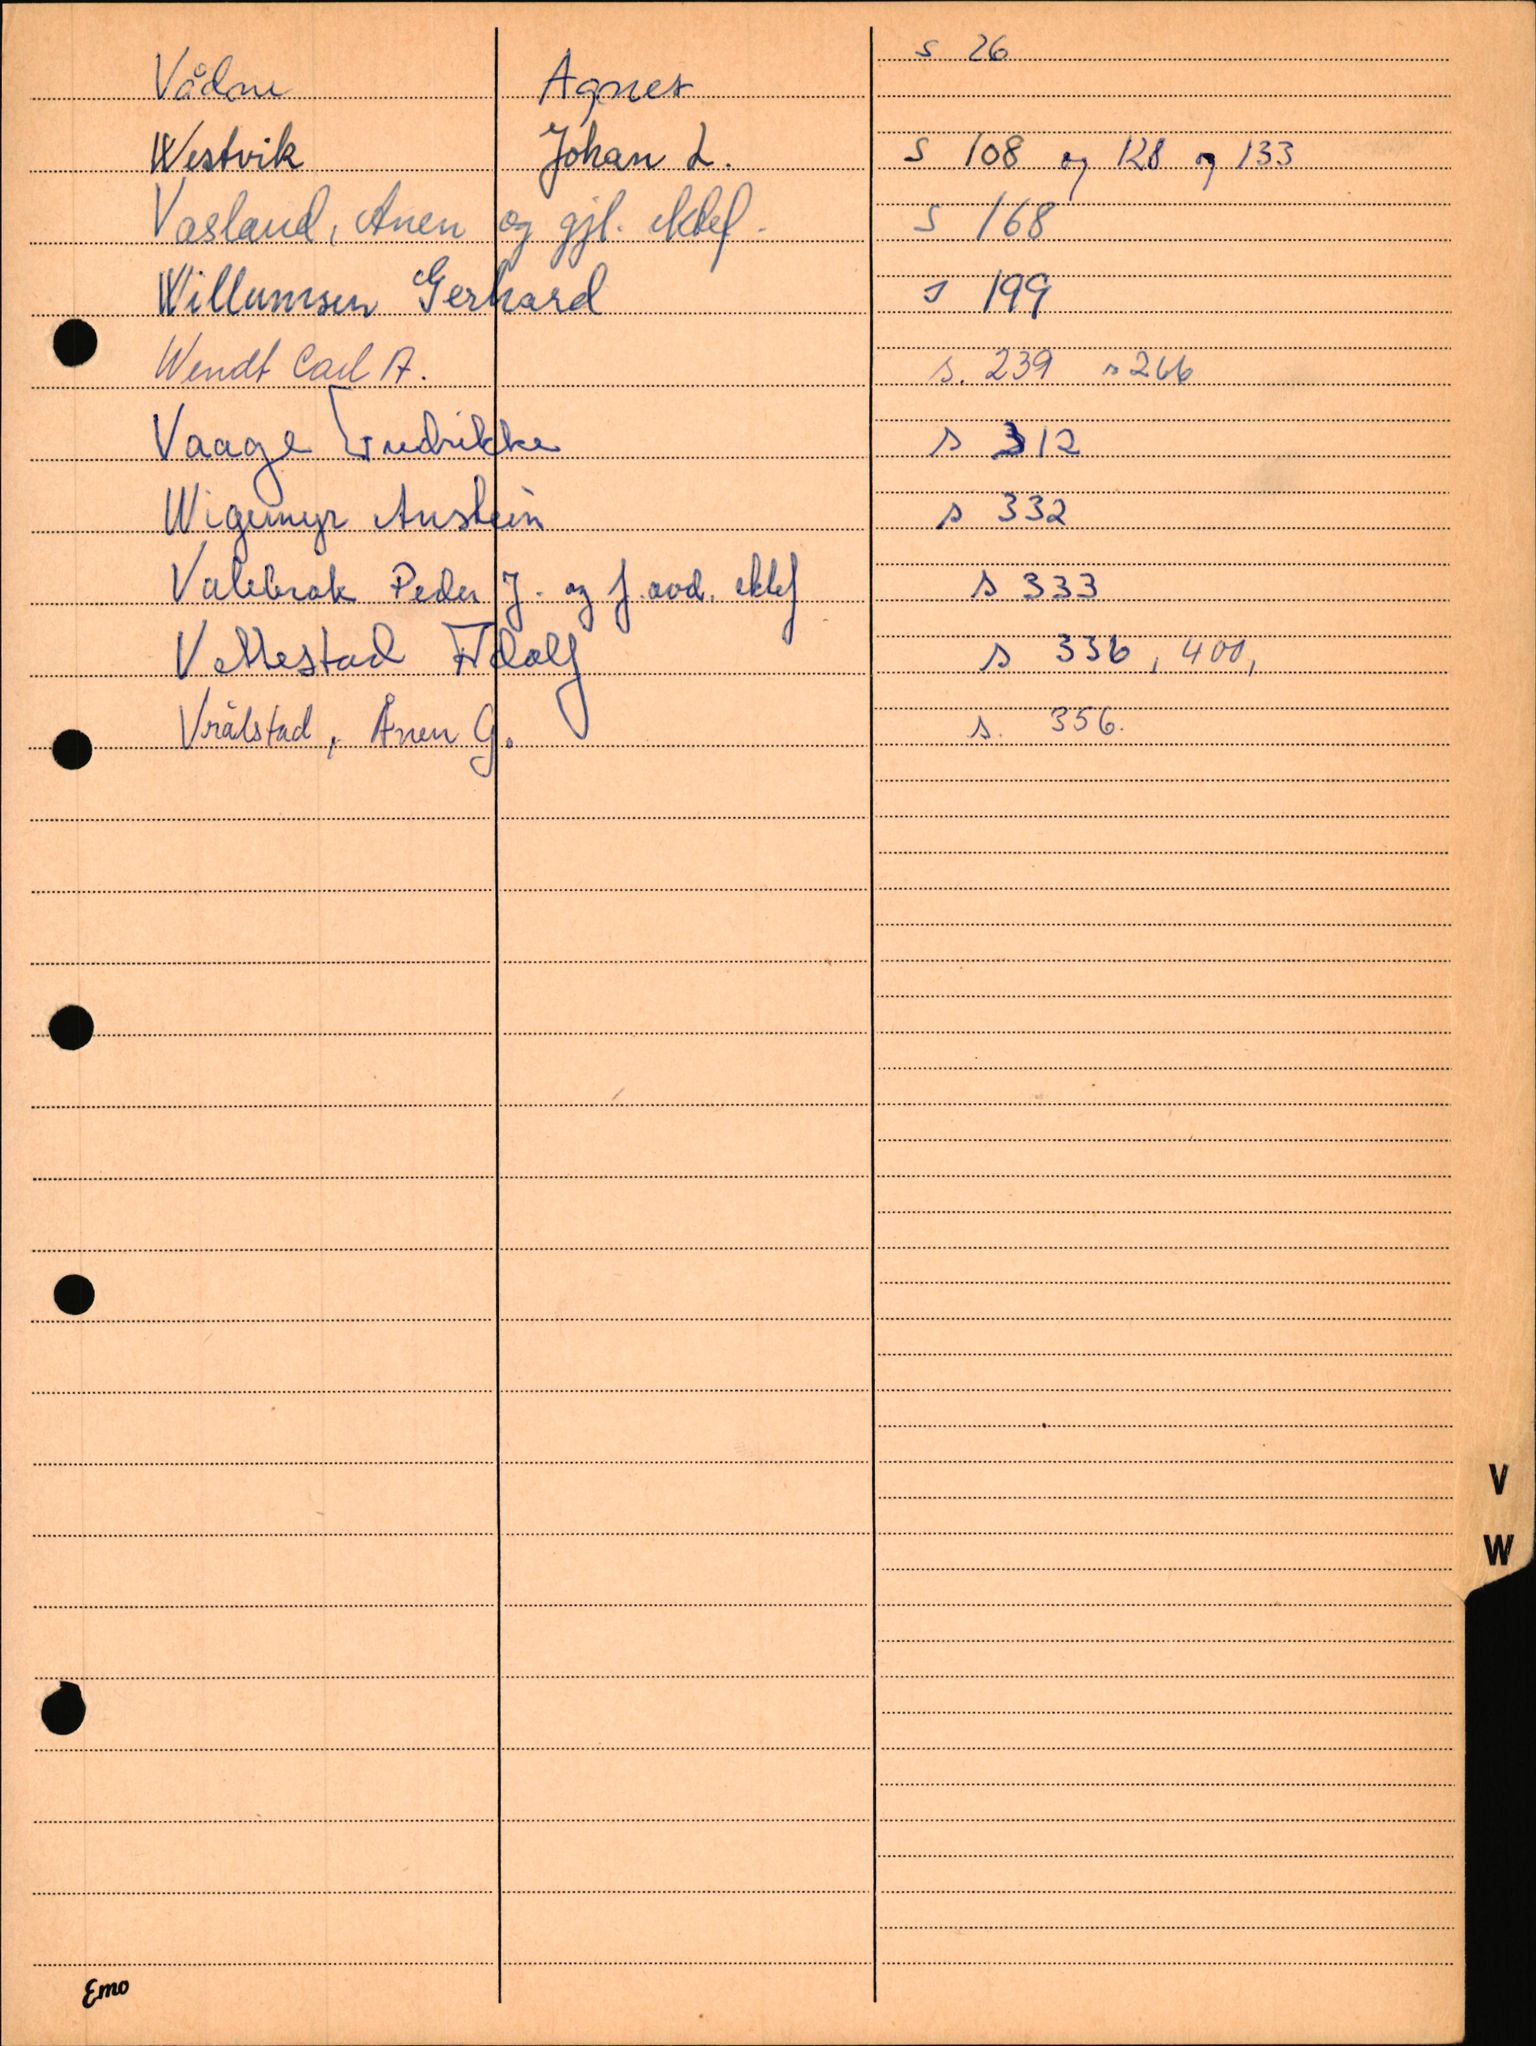 Vådne Agnes s 26
Westvik Johan L. s 108 og 128 og 133
Vasland, Anen og gjl. ektef. s 168
Willumsen Gerhard s 199
Wendt Carl A. s. 239 s 266
Vaage Fredrikke s 312
Wigemyr Austein s 332
Valebrok Peder J. og f. avd. ektef s 333
Vettestad Adolf s 336, 400,
Vrålstad, Ånen G. s. 356.
V
W
Emo